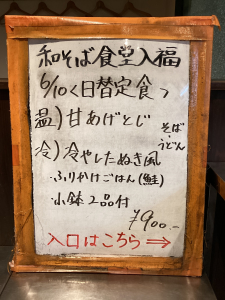 和そば食堂入福
6/10く日替定食っ
温)甘あげとじ
そば・うどん
冷)冷やしたぬき風
・ふりかけごはん(鮭)
・小鉢2品付
¥900.-
入口はこちら⇒